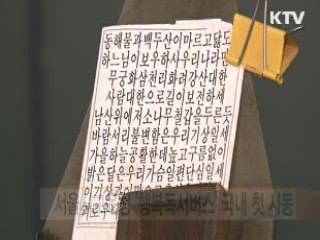 KTV
동해물과백두산이마르고닳도
하느님이보우하사우리나라만
무궁화삼천리화려강산대한
사람대한으로길이보전하세
남산위에저소나무철갑을두른듯
바람서리불변함은우리기상일세
가을하늘공활한데높고구름없이
밝은달은우리가슴일편단심일세
서울 행복독서버스 국내 첫 시동